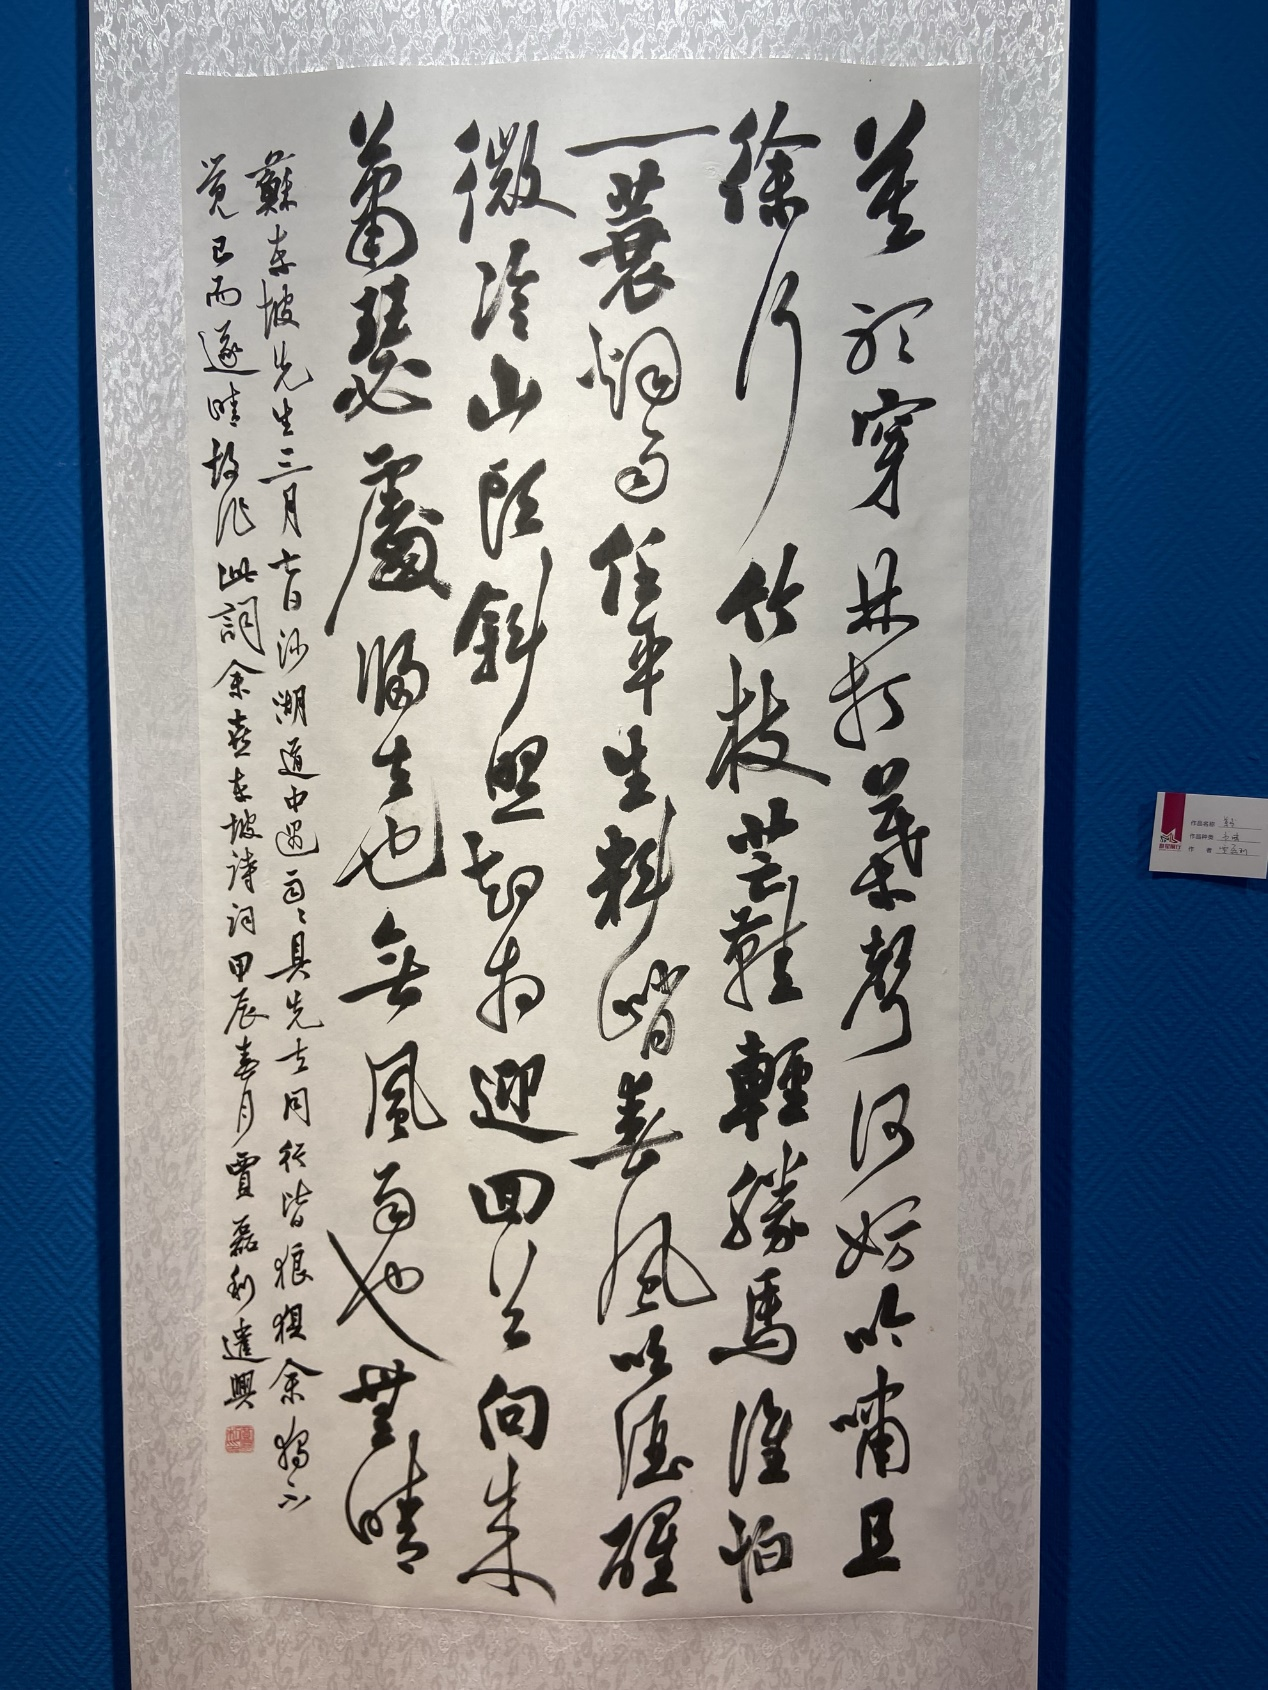 莫聽穿林打葉聲何妨吟嘯且
徐行竹杖芒鞋輕勝馬誰怕
一蓑烟雨任平生料峭春風吹酒醒
微冷山頭斜照却相迎回首向来
蕭瑟處歸去也無風雨也無晴
蘇東坡先生三月七日沙湖道中遇雨〻具先去同行皆狼狽余獨不
覚已而遂晴故作此詞余喜東坡詩詞甲辰春月賈磊利遣興
作品名称
作品种类 书法
作 者 贾磊利